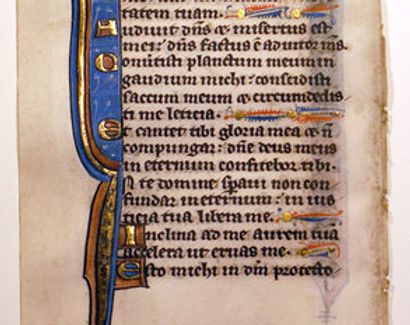 tatem tuam.
Audiuit dñs & misertus est
mei: dñs factus ē adiutor ms.
Conuertisti planctum meum in
gaudium michi: conscidisti
saccum meum & circumdedis
ti me leticia.
Ut cantet tibi gloria mea & ñ
compungar: dñe deus meus
in eternum confitebor tibi.
In te domine speraui non con
fundar in eternum: in ius
ticia tua libera me.
Inclina ad me aurem tuā
accelera ut eruas me.
Esto michi in dm̄ protecto